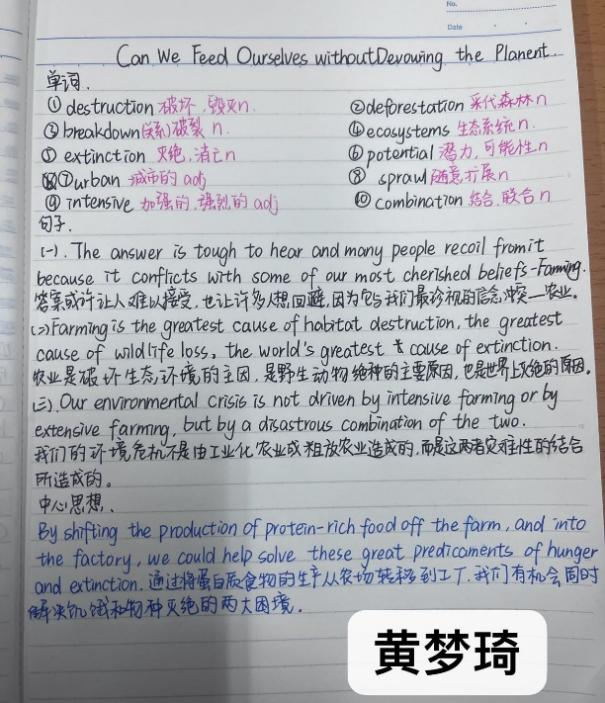 No.
Date
Can We Feed Ourselves without Devouring the Planent.
单词.
① destruction 破坏,毁灭n. ② deforestation 采伐森林n
③ breakdown (关系)破裂 n. ④ ecosystems 生态系统n.
⑤ extinction 灭绝,消亡n ⑥ potential 潜力,可能性n
⑦ urban 城市的 adj ⑧ sprawl 随意扩展n
⑨ intensive 加强的,强烈的 adj ⑩ combination 结合,联合n
句子.
(一). The answer is tough to hear and many people recoil from it
because it conflicts with some of our most cherished beliefs-Farming.
答案或许让人难以接受,也让许多人想回避,因为它与我们最珍视的信念冲突—农业。
(二) Farming is the greatest cause of habitat destruction, the greatest
cause of wildlife loss, the world's greatest cause of extinction.
农业是破坏生态环境的主因,是野生动物绝种的主要原因,也是世界上灭绝的原因。
(三). Our environmental crisis is not driven by intensive farming or by
extensive farming, but by a disastrous combination of the two.
我们的环境危机不是由工业化农业或粗放农业造成的,而是这两者灾难性的结合
所造成的。
中心思想.
By shifting the production of protein-rich food off the farm, and into
the factory, we could help solve these great predicaments of hunger
and extinction. 通过将蛋白质食物的生产从农场转移到工厂,我们有机会同时
解决饥饿和物种灭绝的两大困境.
黄梦琦